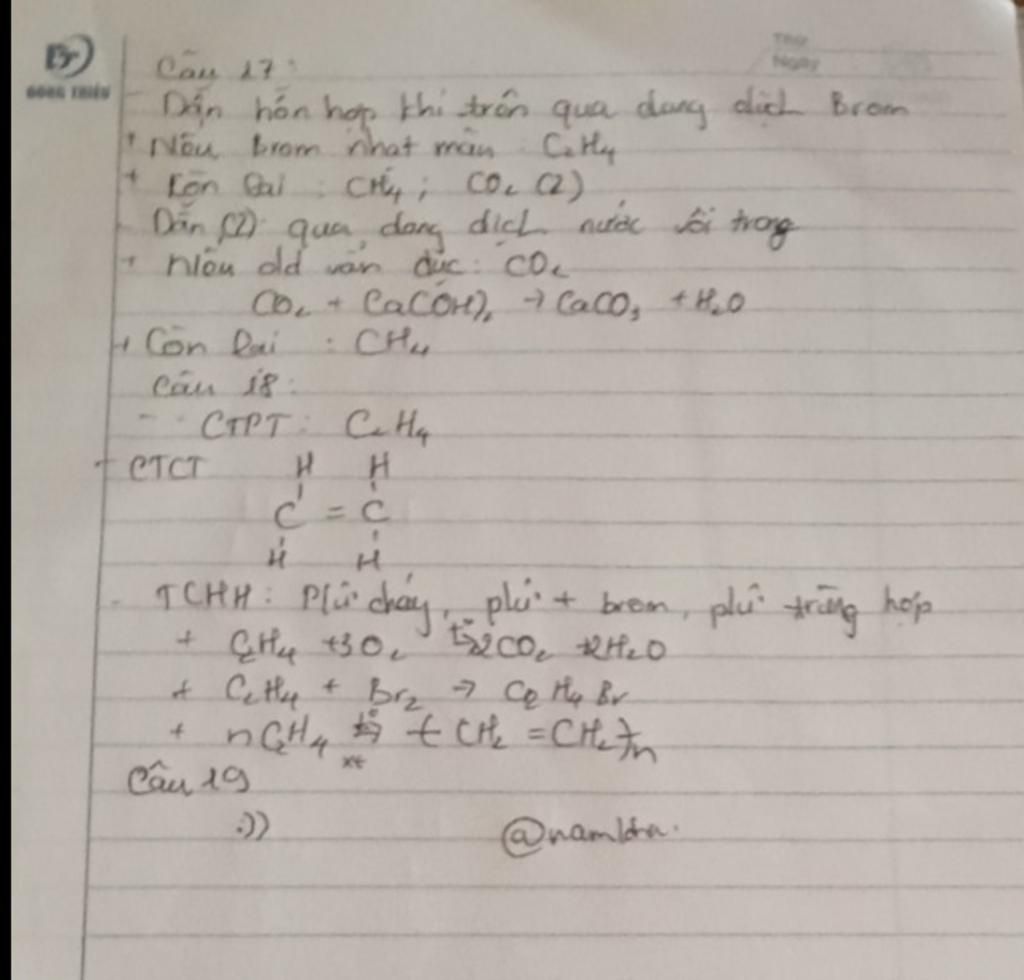 HỒNG TRIỀU
Thứ
Ngày
Câu 17:
Dẫn hỗn hợp khí trên qua dung dịch Brom
+ Nếu brom nhạt màu : C₂H₄
+ Còn lại : CH₄ ; CO₂ (2)
Dẫn (2) qua dung dịch nước vôi trong
+ nếu dd vẩn đục : CO₂
CO₂ + Ca(OH)₂ → CaCO₃ + H₂O
+ Còn lại : CH₄
Câu 18:
- CTPT : C₂H₄
+ CTCT H H
C = C
H H
- TCHH : Pứ cháy, pứ + brom, pứ trùng hợp
+ C₂H₄ + 3O₂ t°→ 2CO₂ + 2H₂O
+ C₂H₄ + Br₂ → C₂H₄Br
+ nC₂H₄ t°→ xt (CH₂ = CH₂)n
Câu 19
:))